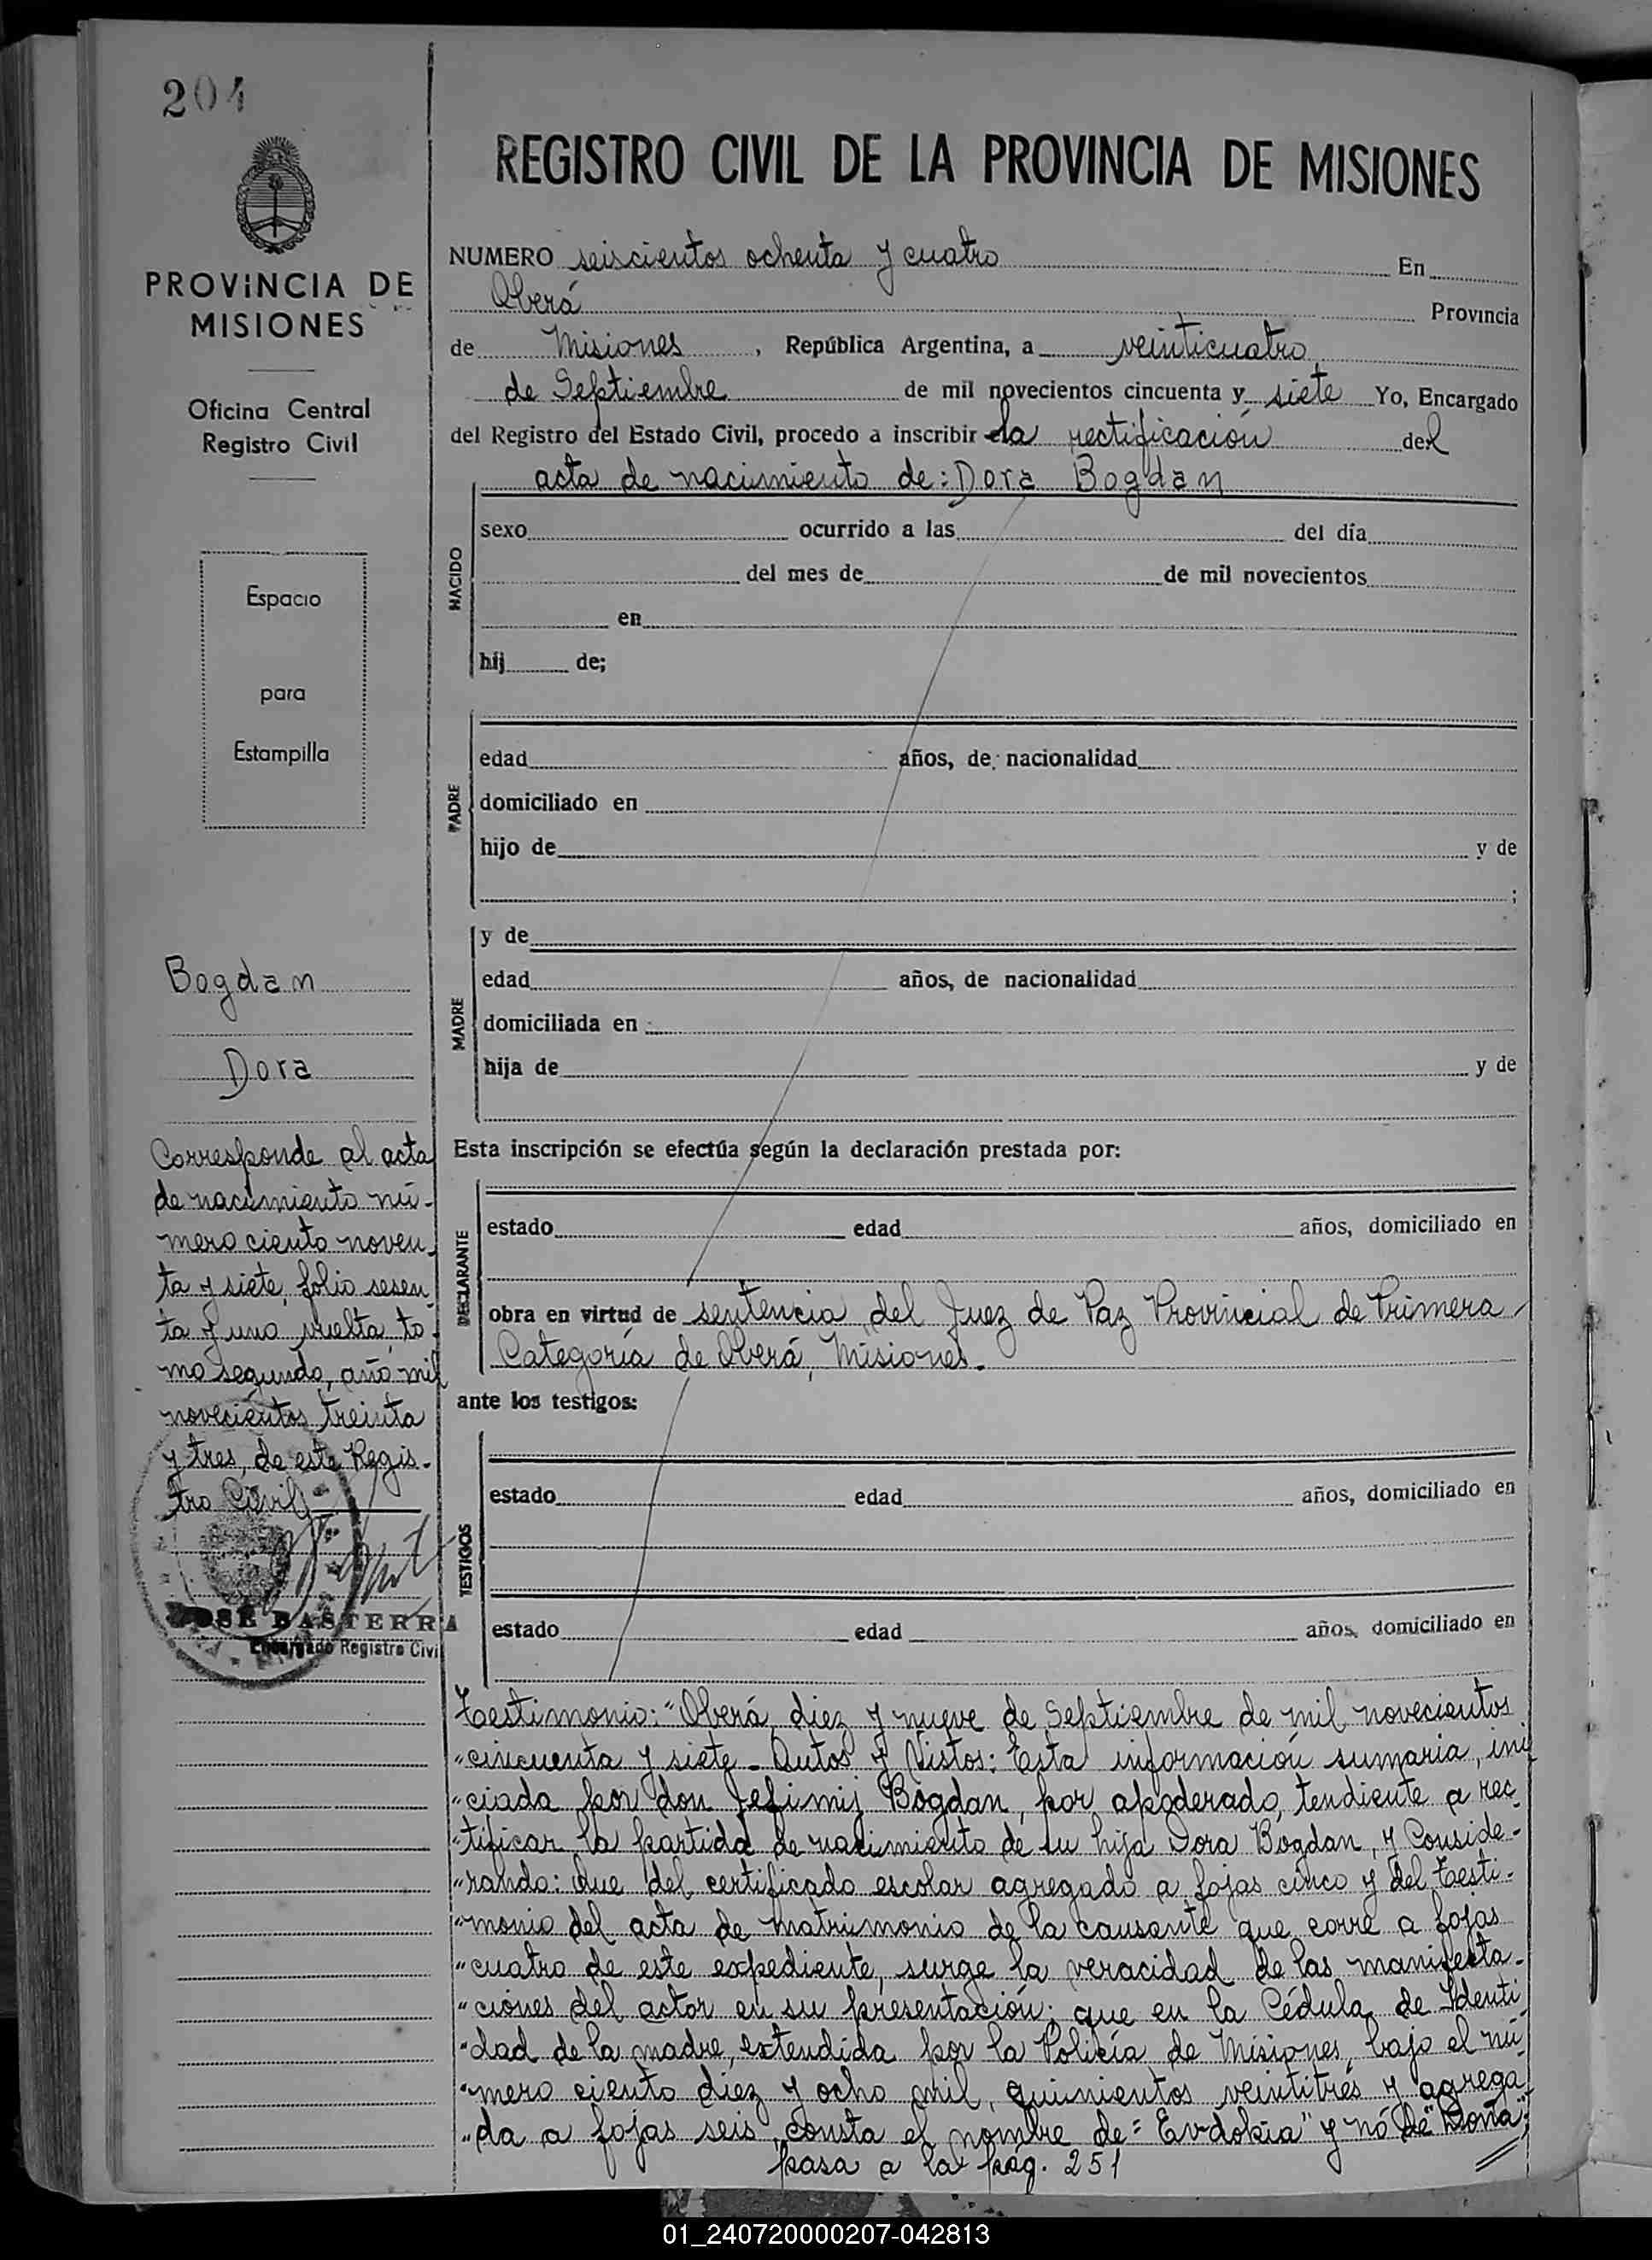 204
REGISTRO CIVIL DE LA PROVINCIA DE MISIONES
PROVINCIA DE
MISIONES
Oficina Central
Registro Civil
Espacio
para
Estampilla
Bogdan
Dora
Corresponde al acta
de nacimiento nú-
mero ciento noven-
ta y siete, folio sesen-
ta y uno vuelta, to-
mo segundo, año mil
novecientos treinta
y tres, de este Regis-
tro Civil
JOSÉ BASTERRA
Encargado Registro Civil
NUMERO seiscientos ochenta y cuatro En
Oberá Provincia
de Misiones, República Argentina, a veinticuatro
de Septiembre de mil novecientos cincuenta y siete Yo, Encargado
del Registro del Estado Civil, procedo a inscribir la rectificación del
acta de nacimiento de: Dora Bogdan
NACIDO
sexo ocurrido a las del día
del mes de de mil novecientos
en
hij de;
PADRE
edad años, de nacionalidad
domiciliado en
hijo de y de
;
MADRE
y de
edad años, de nacionalidad
domiciliada en
hija de y de
Esta inscripción se efectúa según la declaración prestada por:
DECLARANTE
estado edad años, domiciliado en
obra en virtud de sentencia del Juez de Paz Provincial de Primera
Categoría de Oberá, Misiones.
ante los testigos:
TESTIGOS
estado edad años, domiciliado en
estado edad años, domiciliado en
Testimonio: "Oberá, diez y nueve de Septiembre de mil novecientos
"cincuenta y siete. Autos y Vistos: Esta información sumaria, ini
"ciada por don Jefimij Bogdan, por apoderado, tendiente a rec
"tificar la partida de nacimiento de su hija Dora Bogdan, y Conside-
"rando: Que del certificado escolar agregado a fojas cinco y del testi-
"monio del acta de matrimonio de la causante que corre a fojas
"cuatro de este expediente, surge la veracidad de las manifesta-
"ciones del actor en su presentación; que en la Cédula de Identi
"dad de la madre, extendida por la Policía de Misiones, bajo el nú
"mero ciento diez y ocho mil, quinientos veintitrés y agrega
"da a fojas seis, consta el nombre de: "Evdokia" y nó de "Doña";
pasa a la pág. 251
01_240720000207-042813